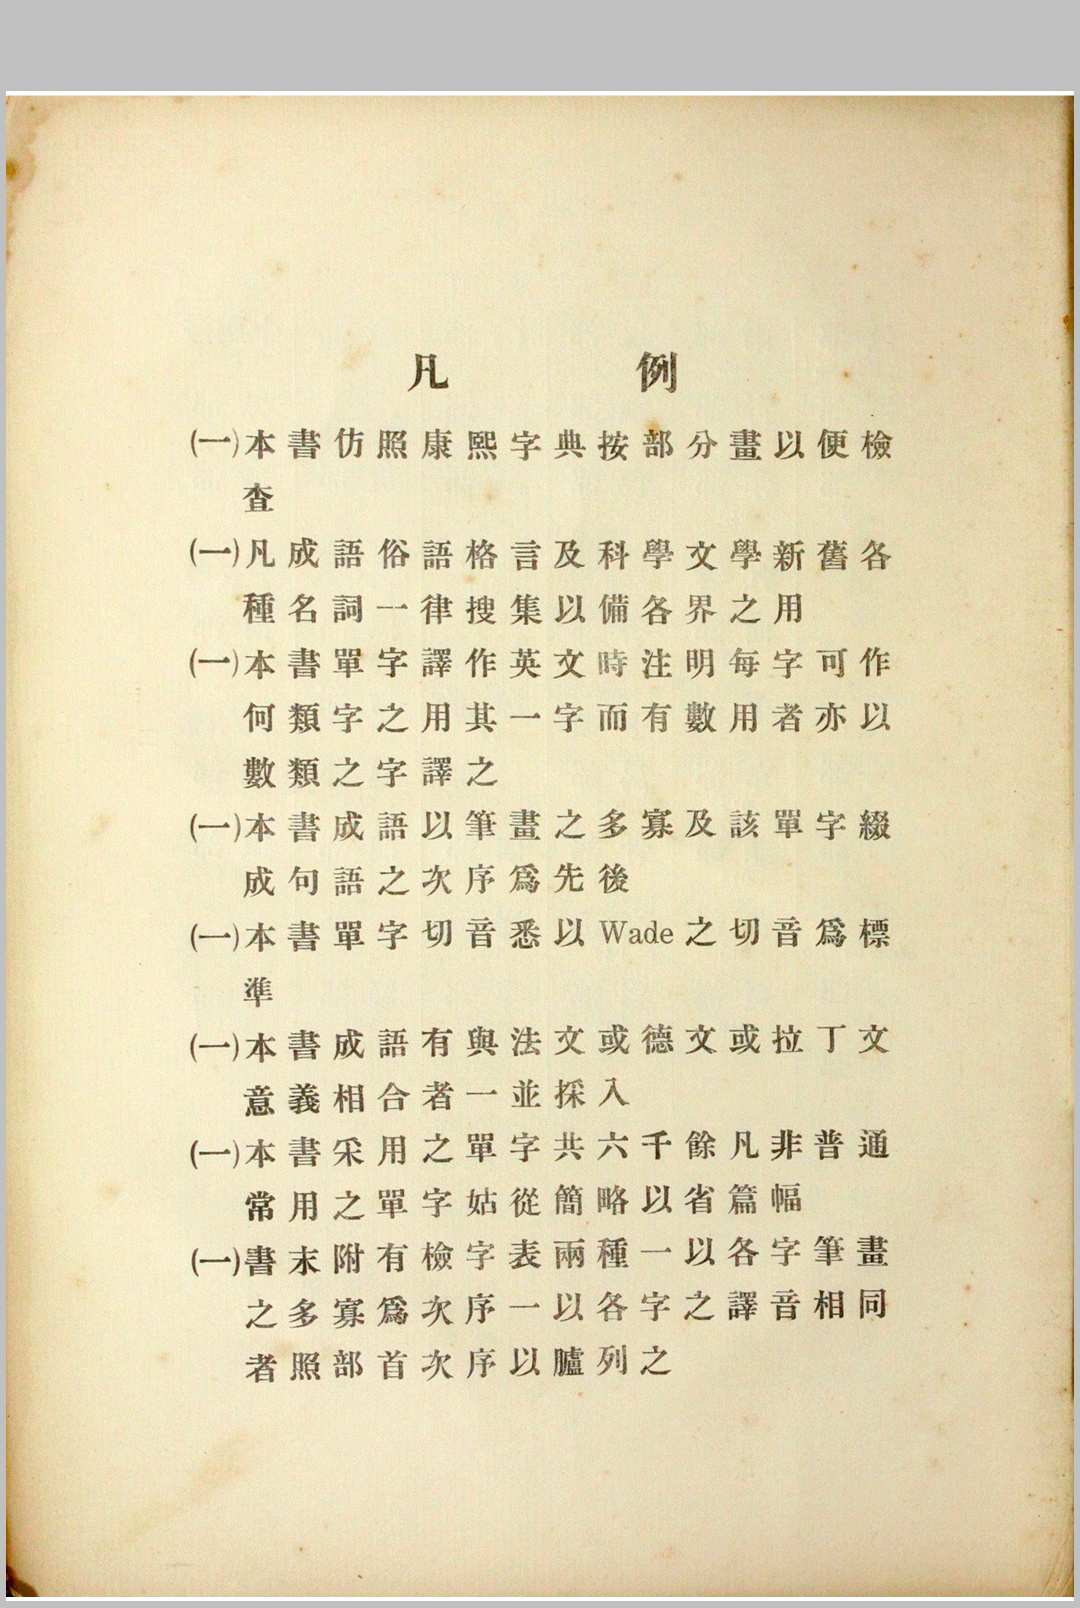 凡例
(一)本書仿照康熙字典按部分畫以便檢
查
(一)凡成語俗語格言及科學文學新舊各
種名詞一律搜集以備各界之用
(一)本書單字譯作英文時注明每字可作
何類字之用其一字而有數用者亦以
數類之字譯之
(一)本書成語以筆畫之多寡及該單字綴
成句語之次序爲先後
(一)本書單字切音悉以Wade之切音爲標
準
(一)本書成語有與法文或德文或拉丁文
意義相合者一並採入
(一)本書采用之單字共六千餘凡非普通
常用之單字姑從簡略以省篇幅
(一)書末附有檢字表兩種一以各字筆畫
之多寡爲次序一以各字之譯音相同
者照部首次序以臚列之